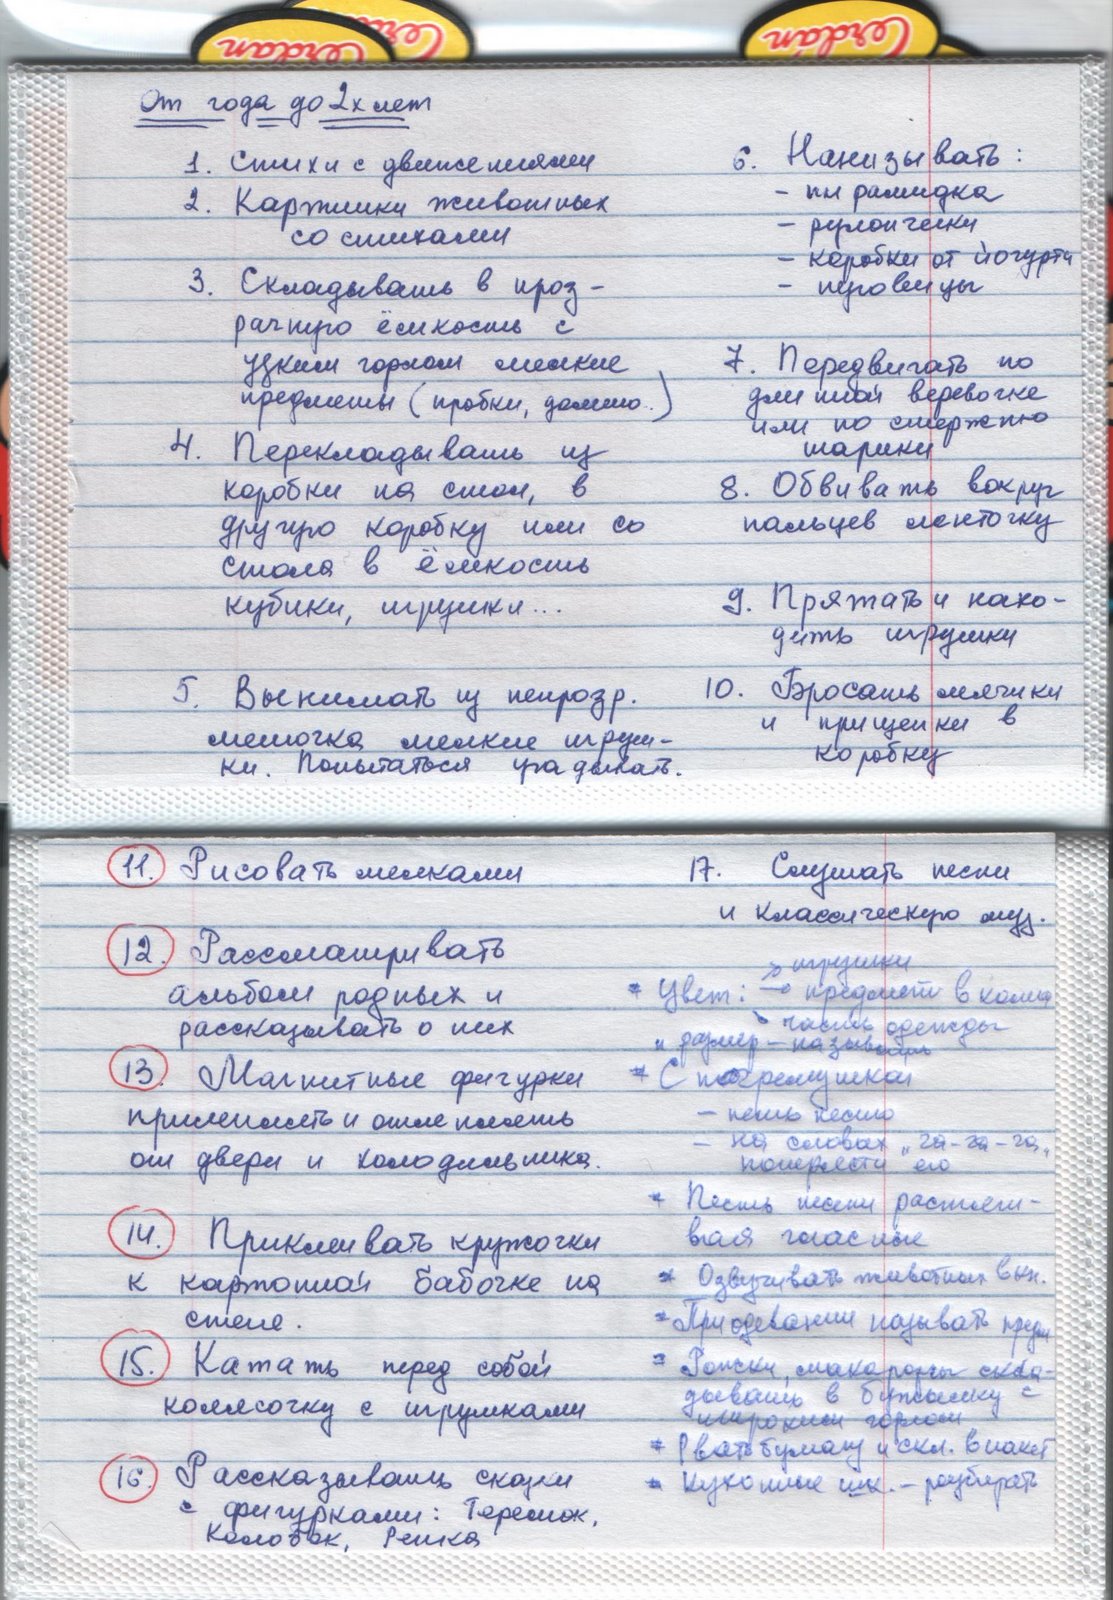 Cerdán
Cerdán
Cerdán
От года до 2х лет
1. Стихи с движениями
2. Картинки животных
со стихами
3. Складывать в проз-
рачную ёмкость с
узким горлом мелкие
предметы (пробки, домино..)
4. Перекладывать из
коробки на стол, в
другую коробку или со
стола в ёмкость
кубики, игрушки...
5. Вынимать из непрозр.
мешочка мелкие игруш-
ки. Попытаться угадывать.
6. Нанизывать:
- пирамидка
- рулончики
- коробки от йогурта
- пуговицы
7. Передвигать по
длинной веревочке
или по стержню
шарики
8. Обвивать вокруг
пальцев ленточку
9. Прятать и нахо-
дить игрушки
10. Бросать мячики
и прищепки в
коробку
11. Рисовать мелками
12. Рассматривать
альбом родных и
рассказывать о них
13. Магнитные фигурки
прилеплять и отлеплять
от двери и холодильника.
14. Приклеивать кружочки
к картонной бабочке на
стене.
15. Катать перед собой
колясочку с игрушками
16. Рассказывать сказки
с фигурками: Теремок,
Колобок, Репка
17. Слушать песни
и классическую муз.
игрушки
* Цвет: предмети в комна
части одежды
и размер - называть
* С погремушкой
- петь песню
- на словах „га-га-га„
потрясти его
* Петь песни растяги-
вая гласные
* Озвучивать животных
* При одевании называть предм
* макароны скла-
дывать в бутылку с
широким горлом
* Рвать бумагу и скл. в пакет
* Кухонные шк. - разбирать